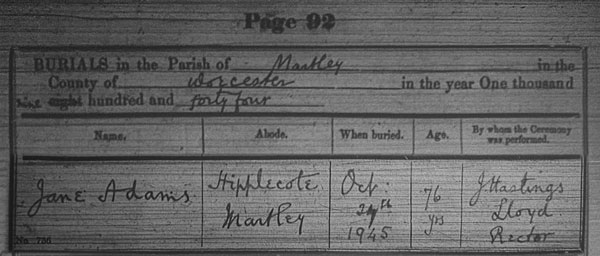 Page 92
BURIALS in the Parish of Martley in the
County of Worcester in the year One thousand
nine eight hundred and forty four
Name. Abode. When buried. Age. By whom the Ceremony was performed.
Jane Adams Hipplecote Oct: 76 J Hastings
Martley 24th yrs Lloyd
1945 Rector
No. 736